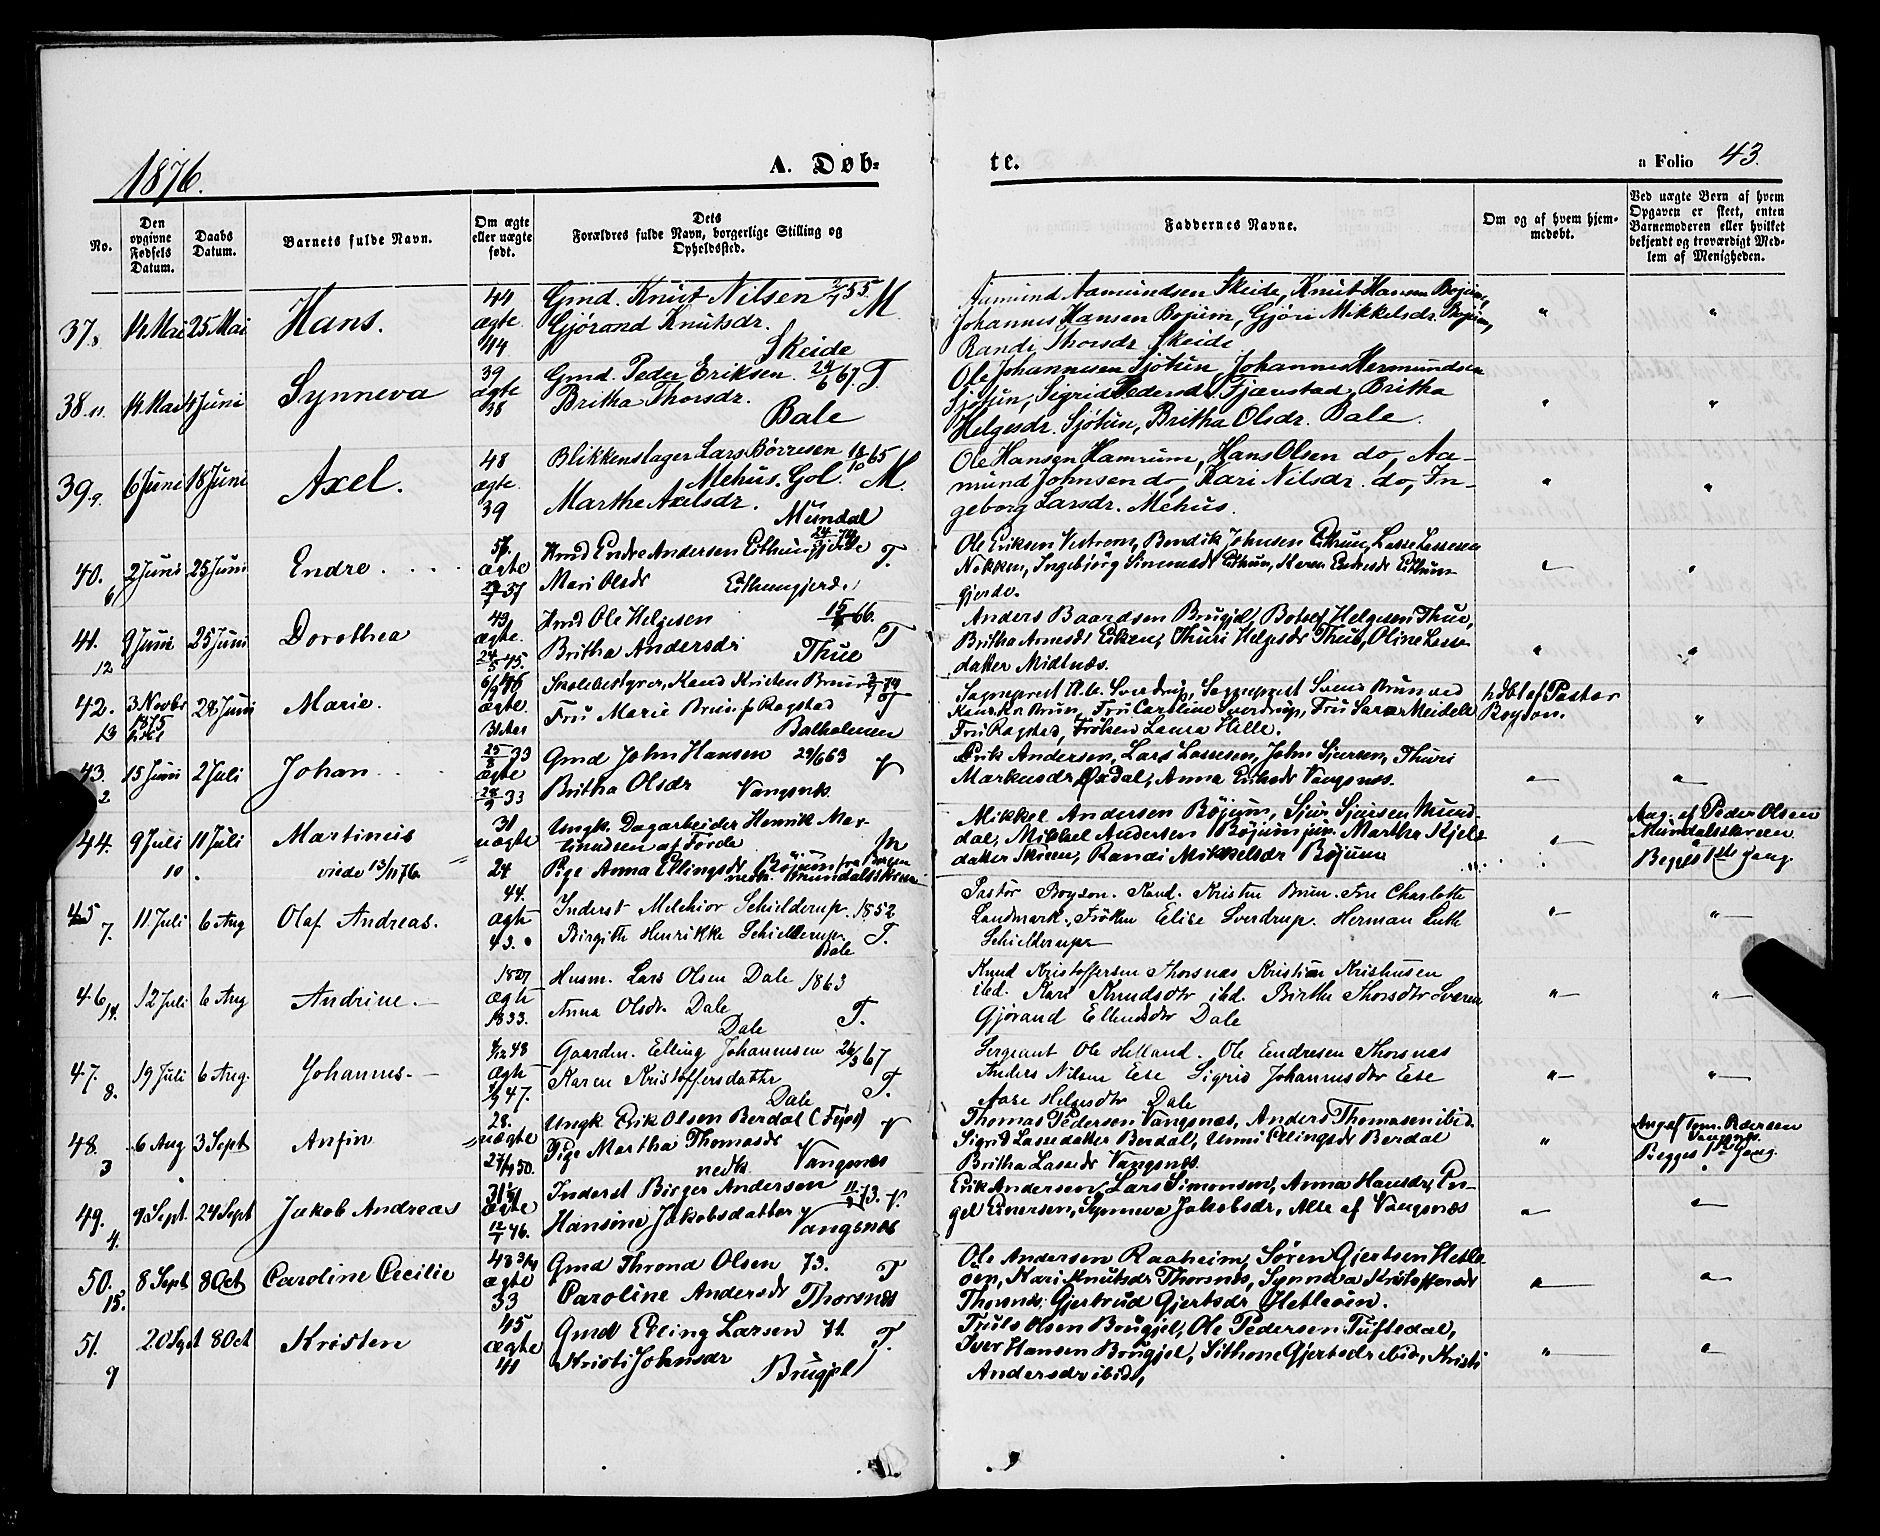 1876.
A. Døb-
te.
a Folio 43.
No.
Den opgivne Fødsels Datum.
Daabs Datum.
Barnets fulde Navn.
Om ægte eller uægte født.
Dets Forældres fulde Navn, borgerlige Stilling og Opholdssted.
Faddernes Navne.
Om og af hvem hjemmedøbt.
Ved uægte Børn af hvem Opgaven er skeet, enten Barnemoderen eller hvilket bekjendt og troværdigt Medlem af Menigheden.
37. 8
14 Mai
25 Mai
Hans.
44
ægte
44
Gmd. Knut Nilsen 55. M
Gjørond Knutsdr.
Skeide
Aamund Aamundsen Skeide, Knut Hansen Bojum,
Johannes Hansen Bojum, Gjøri Mikkelsdr. Bojum,
Randi Thorsdr Skeide
38. 11.
4 Juni
Synneva
39
ægte
38
Gmd. Peder Eriksen. 24/6 67. T.
Britha Thorsdr.
Bale
Ole Johannesen Sjøtun, Johannes Hermundsen
Sjøtun, Sigrid Pedersd. Tjærstad, Britha
Helgesdr. Sjøtun, Britha Olsdr. Bale.
39. 9.
6 Juni
18 Juni
Axel.
48
ægte.
39
Blikkenslager Lars Børresen 18/10 65
Mehus. Gol. M.
Marthe Axelsdr.
Mundal
Ole Hansen Hamrum, Hans Olsen do, Aa-
mund Johnsen do, Kari Nilsdr. do, In-
geborg Larsdr. Mehus.
40. 6
2 Juni
25 Juni
Endre
ægte
37
Andersen T.
Mari Olsdr Eithungjerde.
Ole Eriksen Vestrem, Bendik Johnsen Eithun, Lasse Lassesen
Nökken, Ingebjörg Simensdr Eithun, Karen Endresdr Eithun-
gjerde.
41. 12
9 Juni
25 Juni
Dorothea
43
ægte.
45.
Gmd Ole Helgesen 66. T
Britha Andersdr Thue
Anders Baardsen Brugjel, Botolf Helgesen Thue,
Britha Arnesdr Eiken, Thuri Helgesdr Thue, Oline Lasse-
datter Midtnæs.
42. 13
3 Novbr 1875
28 Juni
Marie.
ægte.
Skolebestyrer, Kand Kristen Brun 74 T
Fru Marie Brun f. Rogstad
Balholmen
Sogneprest H. U. Sverdrup, Sogneprest Svend Brun ved
Kauska Brun, Fru Caroline Sverdrup, Fru Sara Meidell
Fru Rogstad, Frøken Laura Hille.
hdbt af Pastor
Boyson.
43. 2
15 Juni
2 Juli
Johan
33
ægte
33
Gmd John Hansen 29/6 63 V
Britha Olsdr Vangsnes
Erik Andersen, Lars Lassesen, John Sjursen, Thuri
Markusdr Dadal, Anna Eriksdr Vangsnes.
44. 10
9 Juli
11 Juli
Martinus
viede 13/11 76.
31
uægte
24
Ungk. Dagarbeider Henrik Mar-
tinussen af Förde M
Pige Anna Ellingsdr Böjum fra Bergen
nedk. Mundalsskreen
Mikkel Andersen Böjum, Sjur Sjursen Mun-
dal, Mikkel Andersen Böjum jun. Martha Kjels-
datter Skreen, Randi Mikkelsdr Böjum
Ang. af Peder Olsen
Mundalsskreen
Begges 1ste Gang.
45 7.
11 Juli
6 Aug
Olaf Andreas.
44.
ægte
43.
Inderst Melchior Schielderup. 1852
Birgith Henrikke Schielderup. T.
Bale
Pastor Boyson. Kand. Kristen Brun. Fru Charlotte
Landmark. Frøken Elise Sverdrup. Herman Luth
Schielderup
46 14.
12 Juli
6 Aug
Andrine.
1827
ægte
1833.
Husm. Lars Olsen Dale 1863
Anna Olsdr. Dale
Dale T.
Knud Kristoffersen Thorsnæs Kristian Kristiansen
ibd. Kari Knudsdtr ibd. Birthe Thorsdtr Sværen
Gjørand Ellensdtr Dale
47. 8.
19 Juli
6 Aug.
Johannes.
48
ægte
47.
Gaardm. Elling Johannesen 26/3 67
Karen Kristoffersdatter
Dale T.
Sergeant Ole Helland. Ole Endresen Thorsnæs
Anders Nilsen Ese Sigrid Johannesdtr Ese
Aase Helgesdtr Dale
48. 3
6 Aug
3 Sept
Anfin
28.
uægte
50.
Ungk Erik Olsen Berdal (Fejos) V
Pige Martha Thomasdr
nedk. Vangsnes
Thomas Pedersen Vangsnæs, Anders Thomasen ibid.
Sigrid Lassedatter Berdal, Unni Ellingsdr Berdal
Britha Lassedr Vangsnes.
Ang af Tom. Pedersen
Vangsnes.
Begges 1ste Gang.
49. 4.
9 Sept.
24 Sept
Jakob Andreas
ægte
46.
Inderst Birger Andersen 73. V.
Hansine Jakobsdatter Vangsnes
Erik Andersen, Lars Simonsen, Anna Hansdr, En-
gel Einersen, Synneva Jakobsdr, Alle af Vangsnæs
50. 15.
8 Sept
8 Oct
Caroline Cecilie
43
ægte
33
Gmd Thrond Olsen 73. T
Caroline Andersdr Thorsnæs
Ole Andersen Raaheim, Sören Gjertsen Hetle-
öen, Kari Knutsdr Thorsnes, Synneva Kristoffersdr
Thorsnes, Gjertrud Gjertsdr Hetleöen.
51. 9
20 Sept
8 Oct
Kristen
45
ægte
41
Gmd Elling Larsen 71. T.
Kristi Johnsdr
Brugjel
Truls Olsen Brugjel, Ole Pedersen Tuftedal,
Iver Hansen Brugjel, Sithone Gjertsdr ibid, Kristi
Andersdr ibid,